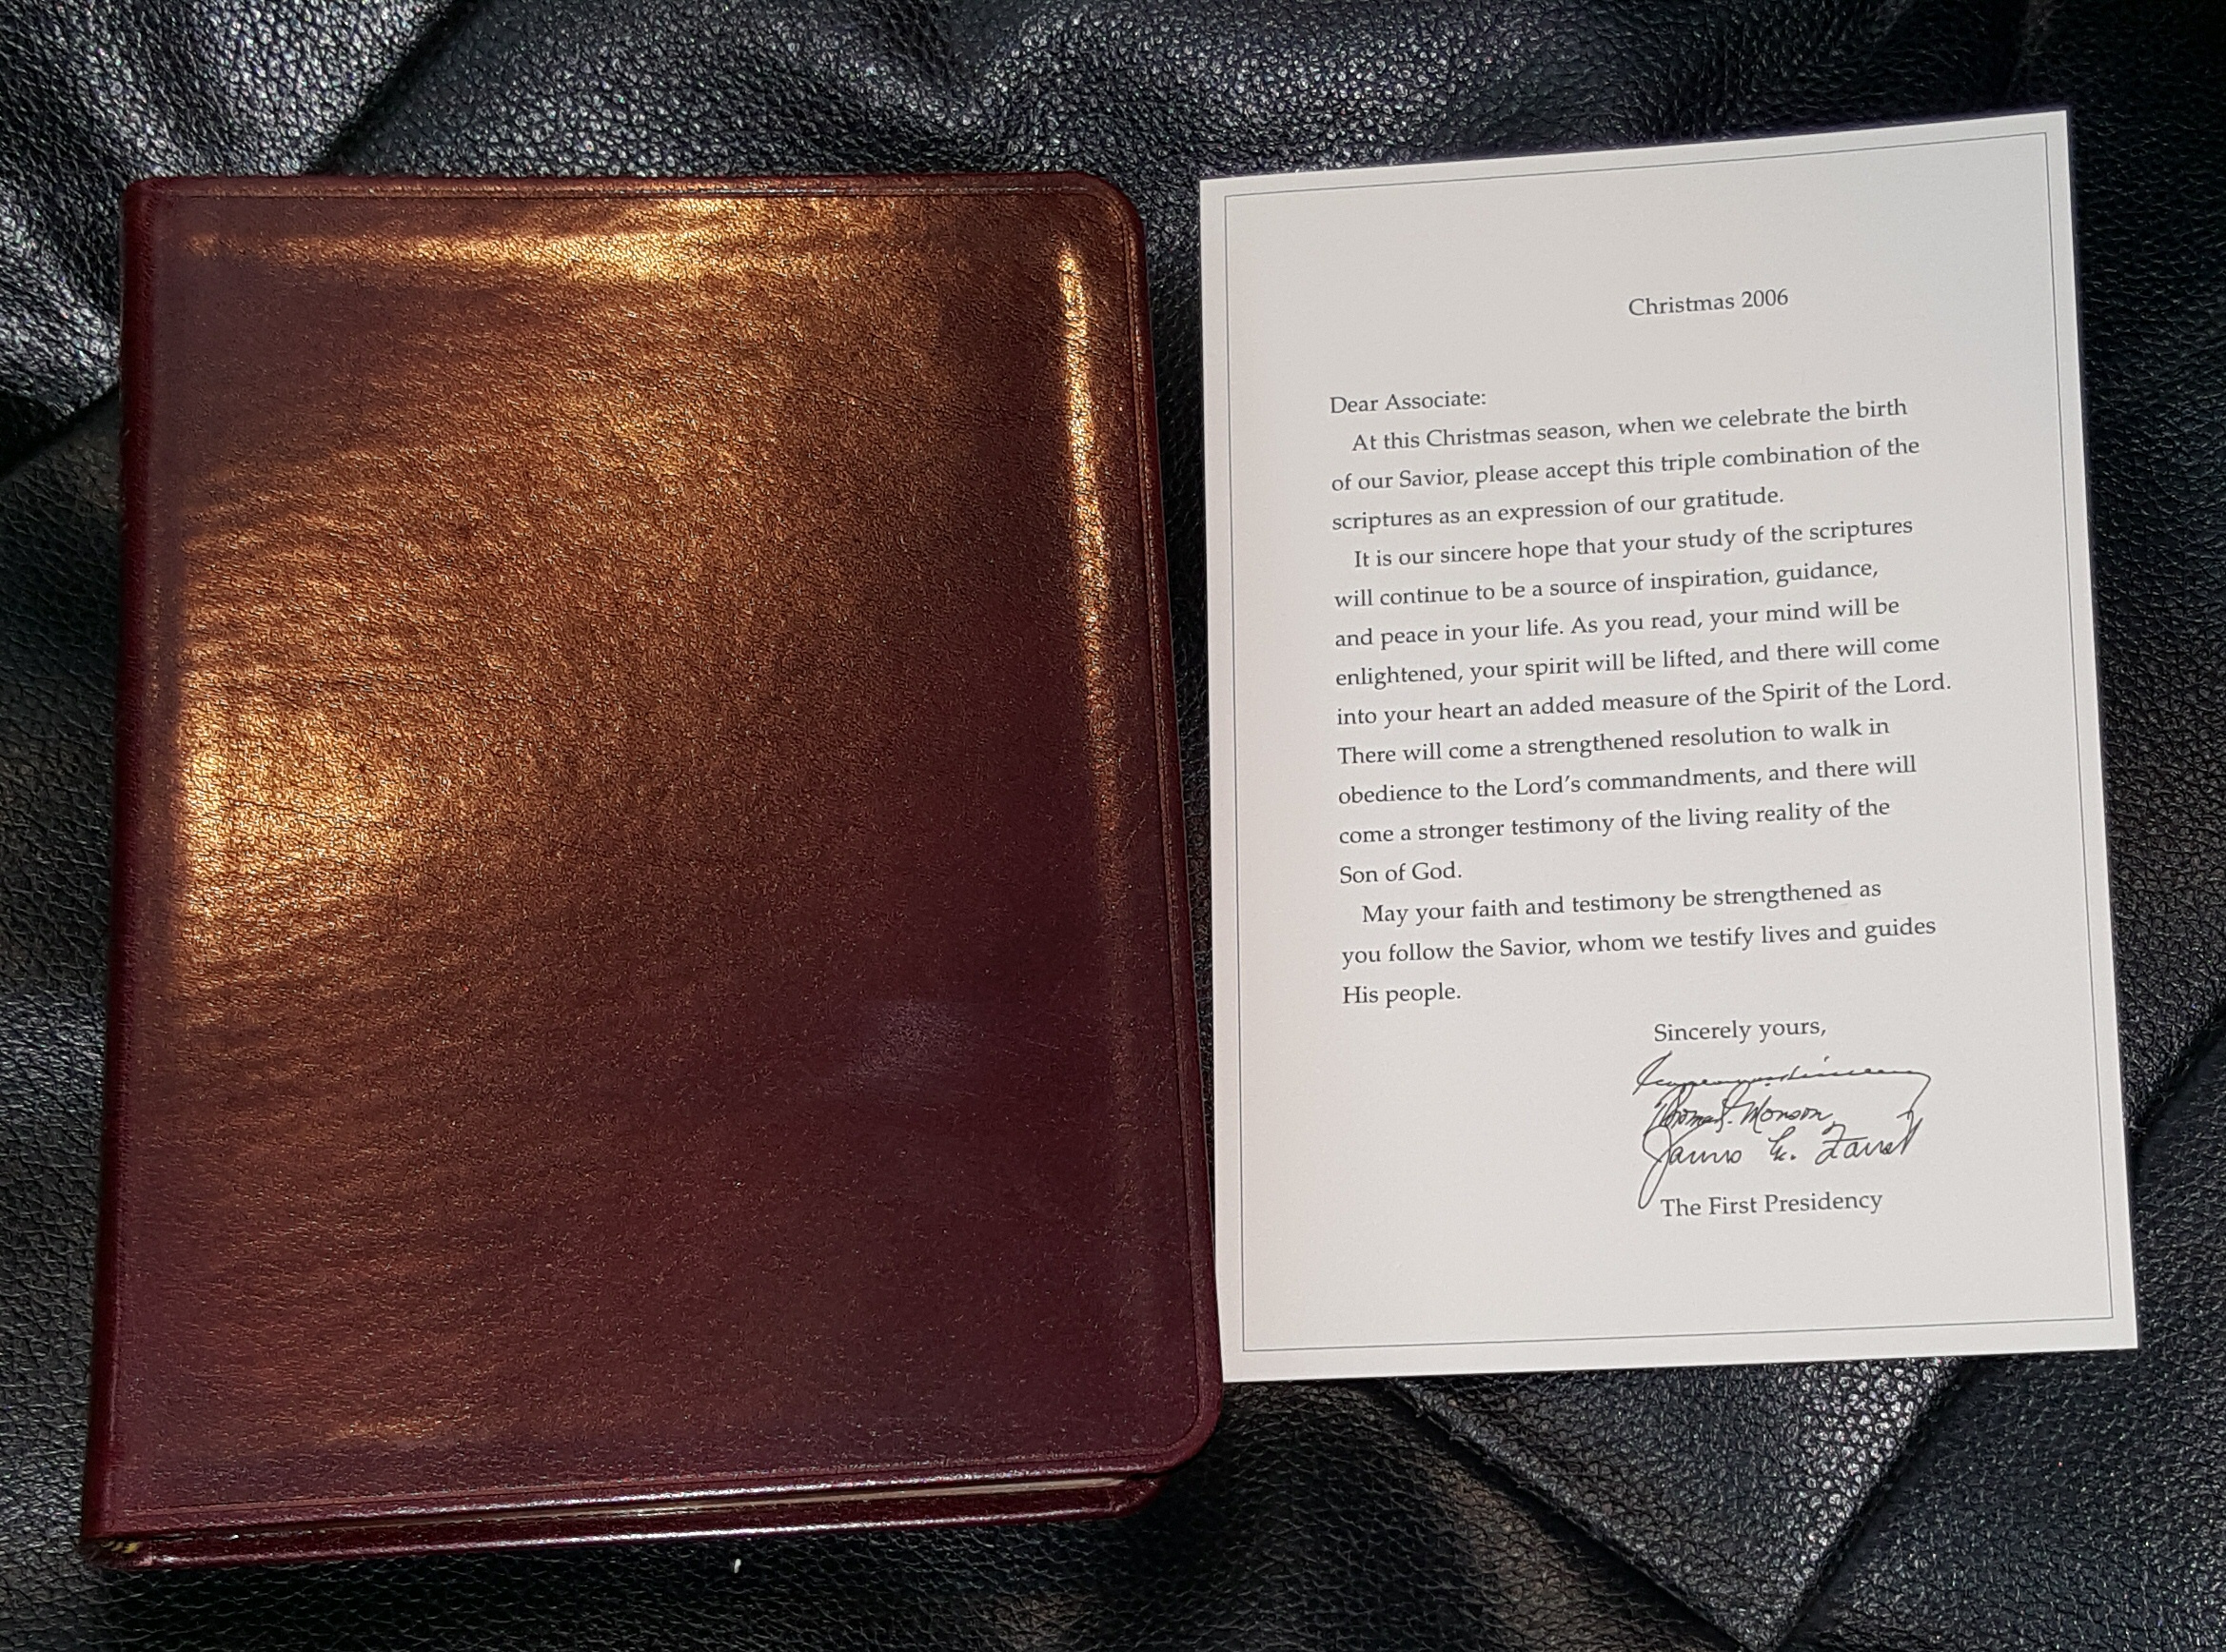 Christmas 2006
Dear Associate:
At this Christmas season, when we celebrate the birth
of our Savior, please accept this triple combination of the
scriptures as an expression of our gratitude.
It is our sincere hope that your study of the scriptures
will continue to be a source of inspiration, guidance,
and peace in your life. As you read, your mind will be
enlightened, your spirit will be lifted, and there will come
into your heart an added measure of the Spirit of the Lord.
There will come a strengthened resolution to walk in
obedience to the Lord's commandments, and there will
come a stronger testimony of the living reality of the
Son of God.
May your faith and testimony be strengthened as
you follow the Savior, whom we testify lives and guides
His people.
Sincerely yours,
Thomas S. Monson
James E. Faust
The First Presidency